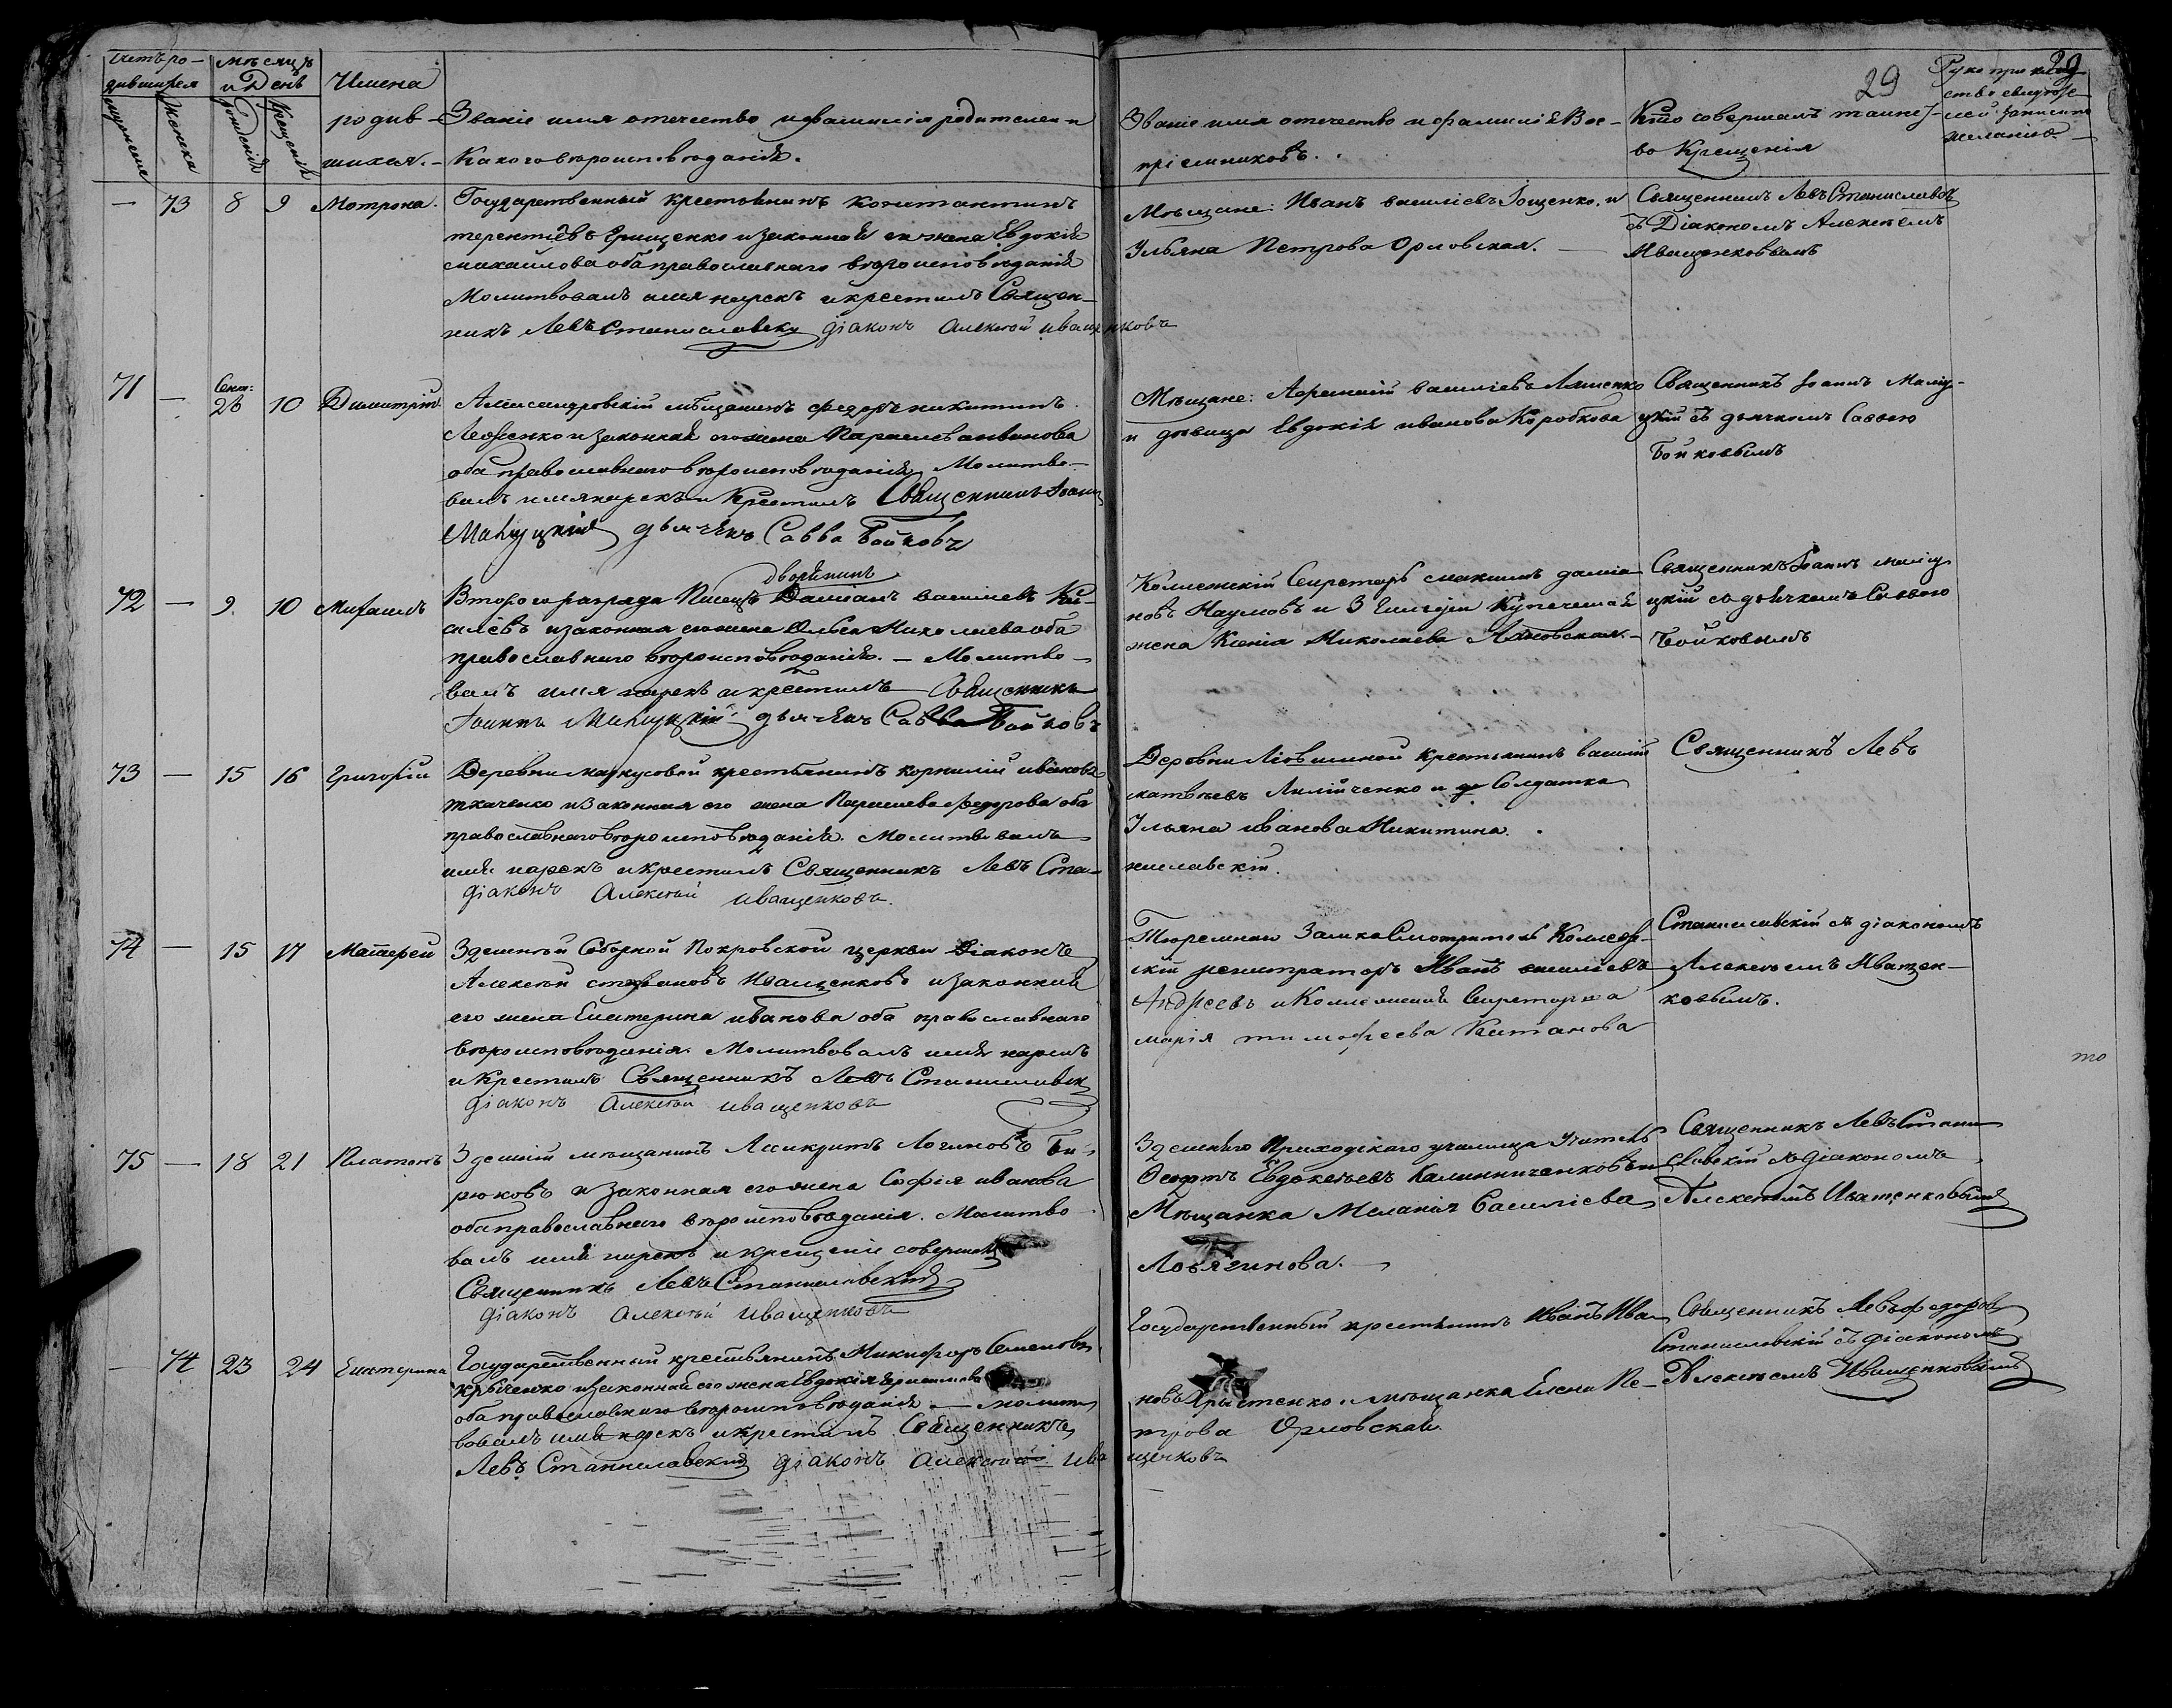 Счетъ ро-
дившихся
мѣсяцъ
и День
Имена
родив-
шихся.-
мужеска
Женска
Рожденія
Крещенія
Званіе имя отечество и фамилія родителей и
Какого вѣроисповѣданія.
Званіе имя отечество и фамилія Вос-
пріемниковъ.
Кто совершалъ таинст-
во Крещенія
29
Рукоприклад
ство свидѣте-
лей записи по
желанію
— 73 8 9 Мотрона.
Государственный крестьянинъ константинъ
терентіевъ Грищенко и законная его жена Евдокія
михайлова оба православнаго вѣроисповѣданія
Молитвовалъ имя нарекъ и крестилъ Священ-
никъ Левъ Станиславскій діаконъ Алексѣй иващенковъ
Мѣщане: Иванъ василіевъ Іощенко. и
Ульяна Петрова Орловская.
Священникъ Левъ Станиславскій
съ Діакономъ Алексѣемъ
Иващенковымъ
71 — Сент: 26 10 Димитрій
Александровскій мѣщанинъ федоръ никитинъ
законная его жена Параскева иванова
оба православнаго вѣроисповѣданія Молитво-
валъ имя нарекъ и Крестилъ Священникъ Іоаннъ
дьячекъ Савва Бойковъ
Мѣщане: василіевъ Ляшенко
и дѣвица Евдокія иванова Коробкова
Священникъ Іоаннъ
цкій съ дьячкомъ Саввою
Бойковымъ
72 — 9. 10 Михаилъ
дворянинъ
Второго разряда Писецъ Даміанъ василіевъ
и законная его жена Николаева оба
православнаго вѣроисповѣданія. — Молитво-
валъ имя нарекъ и крестилъ Священникъ
Іоаннъ дьячекъ Савва Бойковъ
Колежскій Секретарь максимъ даміа-
новъ Наумовъ и 3 Гильдіи Купеческая
жена Ксенія Николаева
Священникъ Іоаннъ
цкій съ дьячкомъ Саввою
Бойковымъ
73 — 15 16 Григорій
Деревни маркусовой крестьянинъ корнилій ивановъ
ткаченко и законная его жена Параскева федорова оба
православнаго вѣроисповѣданія. Молитвовалъ
имя нарекъ и крестилъ Священникъ Левъ Ста-
ниславскій.
діаконъ Алексѣй иващенковъ.
Деревни крестьянинъ василій
матвѣевъ и Солдатка
Ульяна иванова Никитина.
Священникъ Левъ
74 — 15 17 Матфей
Здешней Соборной Покровской церкви Діаконъ
Алексѣй стефановъ Иващенковъ и законная
его жена Екатерина иванова оба православнаго
вѣроисповѣданія. Молитвовалъ имя нарекъ
и Крестилъ Священникъ Левъ Станиславскій
діаконъ Алексѣй иващенковъ
Тюремнаго Замка Смотритель Коллеж-
скій регистраторъ Иванъ василіевъ
Андреевъ и Коллежская Секретарша
марія тимофеева Катанова
Станиславскій съ діакономъ
Алексѣемъ Иващен-
ковымъ.
то
75 — 18 21 Платонъ
Здешній мѣщанинъ Асикритъ Логиновъ Би-
рюковъ и законная его жена Софія иванова
оба православнаго вѣроисповѣданія. Молитво-
валъ имя нарекъ и крещеніе совершалъ
Священникъ Левъ Станиславскій
діаконъ Алексѣй Иващенковъ
Здешняго Приходскаго училища Учитель
Евдокеевъ Калинниченковъ и
Мѣщанка Меланія Василіева
Ловягинова.
Священникъ Левъ Стани
славскій съ Діакономъ
Алексѣемъ Иващенковымъ
— 74 23 24 Екатерина
Государственный крестьянинъ Никифоръ Семеновъ
законная его жена Евдокія
оба православнаго вѣроисповѣданія. — молит
вовалъ имя нарекъ и крестилъ Священникъ
Левъ Станиславскій діаконъ Алексѣй Ива
щенковъ
Государственный крестьянинъ Иванъ Ива
новъ Христенко и мѣщанка Елена Пе-
трова Орловская.
Священникъ Левъ федоровъ
Станиславскій съ діакономъ
Алексѣемъ Иващенковымъ